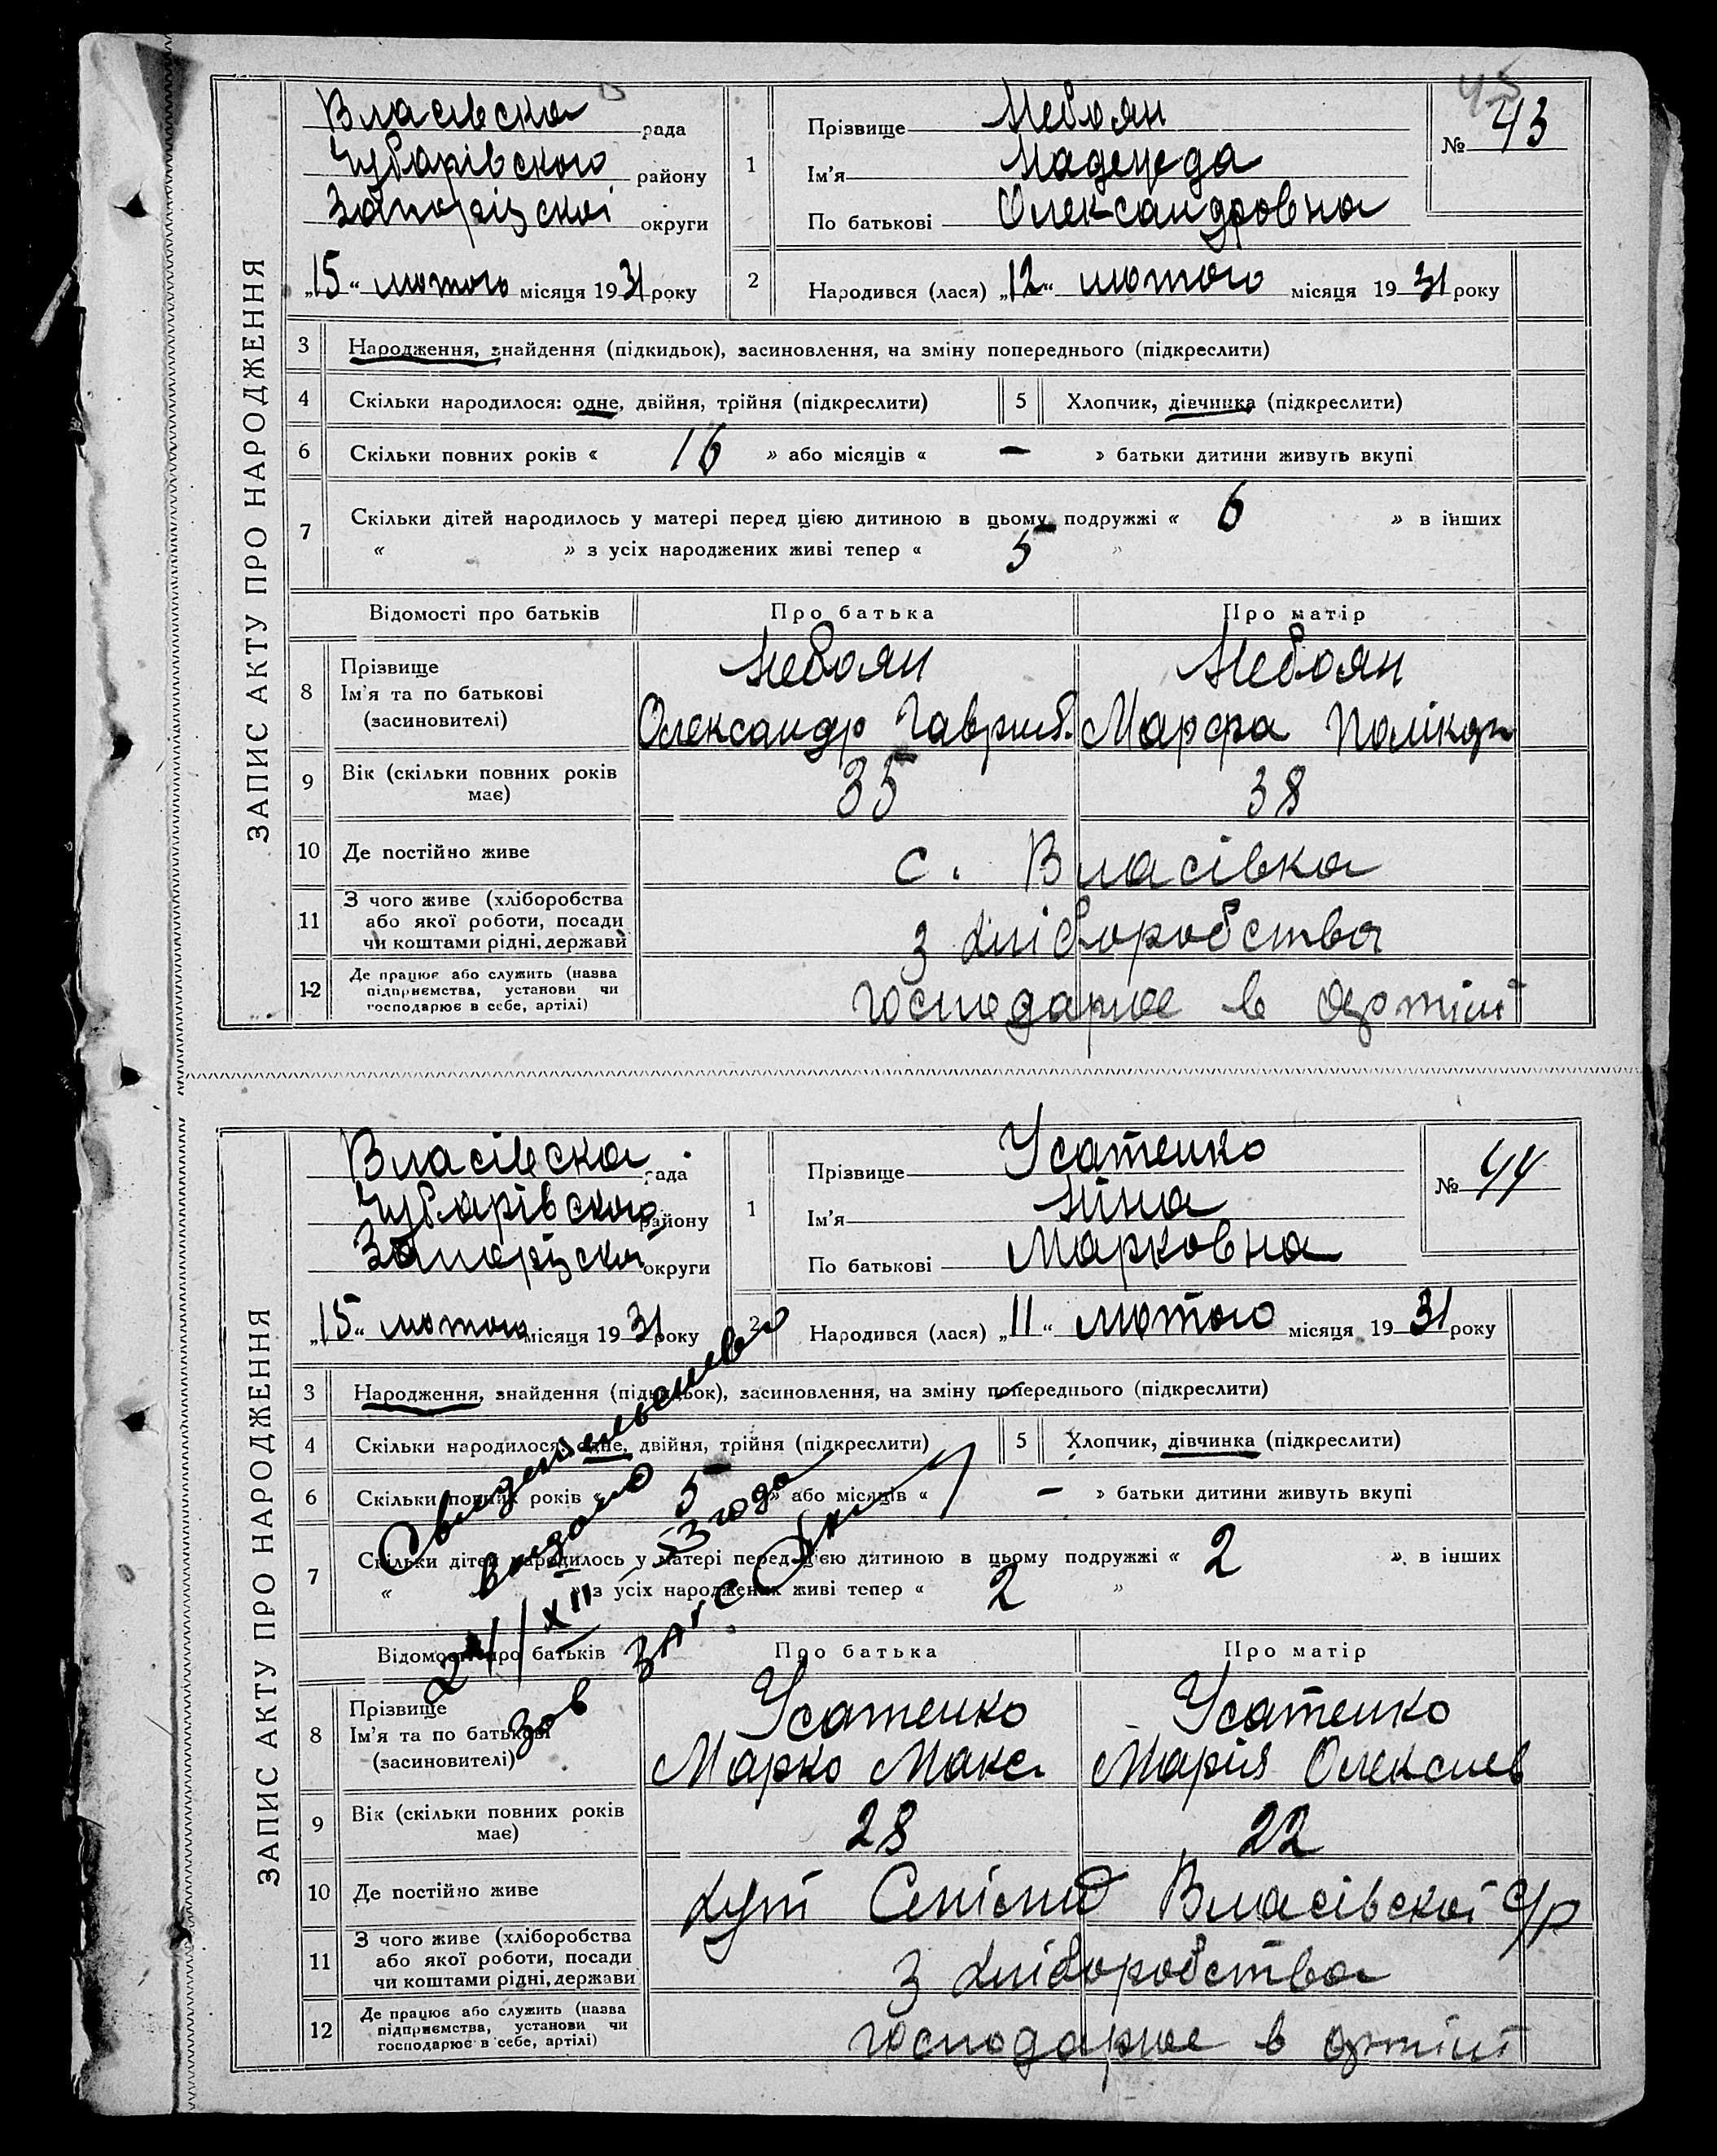 ЗАПИС АКТУ ПРО НАРОДЖЕННЯ
Власівська рада
Чубарівского району
Запоріцкоі округи
„15“ лютого місяця 1931 року
1 Прізвище Небоян
Ім'я Надежда
По батькові Олександровна
45
№ 43
2 Народився (лася) „12“ лютого місяця 1931 року
3 Народження, знайдення (підкидьок), засиновлення, на зміну попереднього (підкреслити)
4 Скільки народилося: одне, двійня, трійня (підкреслити) 5 Хлопчик, дівчинка (підкреслити)
6 Скільки повних років « 16 » або місяців « — » батьки дитини живуть вкупі
7 Скільки дітей народилось у матері перед цією дитиною в цьому подружжі « 6 » в інших
« » з усіх народжених живі тепер « 5 »
Відомості про батьків Про батька Про матір
8 Прізвище Небоян Небоян
Ім'я та по батькові
(засиновителі) Олександр Гаврил. Марфа Полікар
9 Вік (скільки повних років має) 35 38
10 Де постійно живе с. Власівка
11 З чого живе (хліборобства
або якої роботи, посади
чи коштами рідні, держави з хліборобства
12 Де працює або служить (назва
підприємства, установи чи
господарює в себе, артілі) господарює в артілі
ЗАПИС АКТУ ПРО НАРОДЖЕННЯ
Власівска рада
Чубарівского району
Запоріцкоі округи
„15“ лютого місяця 1931 року
1 Прізвище Усатенко
Ім'я Ніна
По батькові Марковна
№ 44
2 Народився (лася) „11“ лютого місяця 1931 року
3 Народження, знайдення (підкидьок), засиновлення, на зміну попереднього (підкреслити)
4 Скільки народилося: одне, двійня, трійня (підкреслити) 5 Хлопчик, дівчинка (підкреслити)
6 Скільки повних років « 5 » або місяців « — » батьки дитини живуть вкупі
7 Скільки дітей народилось у матері перед цією дитиною в цьому подружжі « 2 » в інших
« » з усіх народжених живі тепер « 2 »
Свидетельство
выдано
24/XII 53 года
Зав ЗАГС
Відомості про батьків Про батька Про матір
8 Прізвище Усатенко Усатенко
Ім'я та по батькові
(засиновителі) Марко Макс. Марія Олексиев
9 Вік (скільки повних років має) 28 22
10 Де постійно живе хут Власівскоі с/р
11 З чого живе (хліборобства
або якої роботи, посади
чи коштами рідні, держави з хліборобства
12 Де працює або служить (назва
підприємства, установи чи
господарює в себе, артілі) господарює в артілі